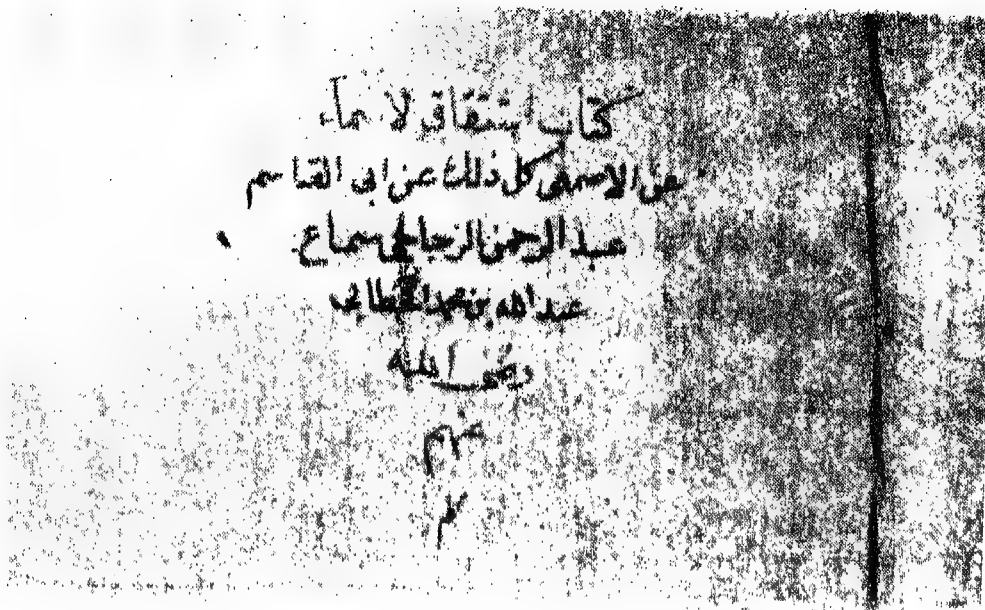 كتاب اشتقاق لاسماء
عن الاصمعي كل ذلك عن ابي القاسم
عبد الرحمن الزجاجي سماع
عبد الله بن محمد الخطابي
رضي الله
عنهم